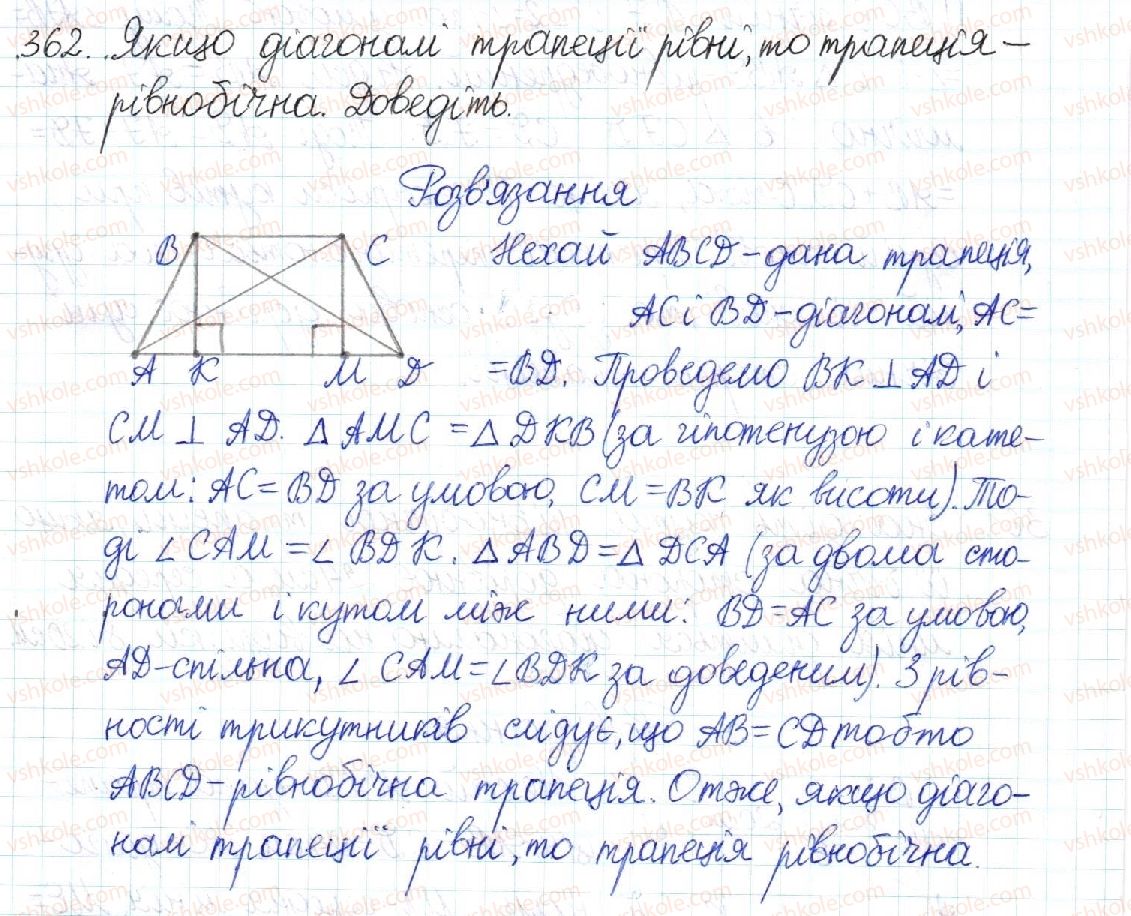 362. Якщо діагоналі трапеції рівні, то трапеція –
рівнобічна. Доведіть.
Розв'язання
B C
A K M D
Нехай ABCD – дана трапеція,
AC і BD – діагоналі, AC =
= BD. Проведемо BK ⊥ AD і
CM ⊥ AD. △ AMC = △ DKB (за гіпотенузою і кате-
том: AC = BD за умовою, CM = BK як висоти). То-
ді ∠ CAM = ∠ BDK. △ ABD = △ DCA (за двома сто-
ронами і кутом між ними: BD = AC за умовою,
AD – спільна, ∠ CAM = ∠ BDK за доведеним). З рів-
ності трикутників слідує, що AB = CD тобто
ABCD – рівнобічна трапеція. Отже, якщо діаго-
налі трапеції рівні, то трапеція рівнобічна.